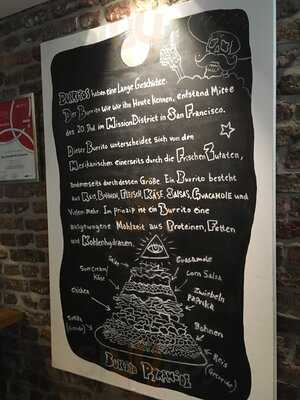 BURRITOS haben eine Lange Geschichte.
Der Burrito wie wir ihn Heute Kennen, entstand Mitte
des 20. Jhd im Mission District in San Francisco.
Dieser Burrito unterscheidet sich von den
Mexikanischen einerseits durch die Frischen Zutaten,
Andererseits durch dessen Größe. Ein Burrito besteht
aus Reis, Bohnen, Fleisch, Käse, Salsas, Guacamole und
Vielem mehr. Im Prinzip ist ein Burrito eine
ausgewogene Mahlzeit aus Proteinen, Fetten
und Kohlenhydraten.
Guacamole
Sour Cream/
Käse
Corn Salsa
Chicken
Zwiebeln
Paprika
Bohnen
Reis
Tortilla
BURRITO PYRAMIDE